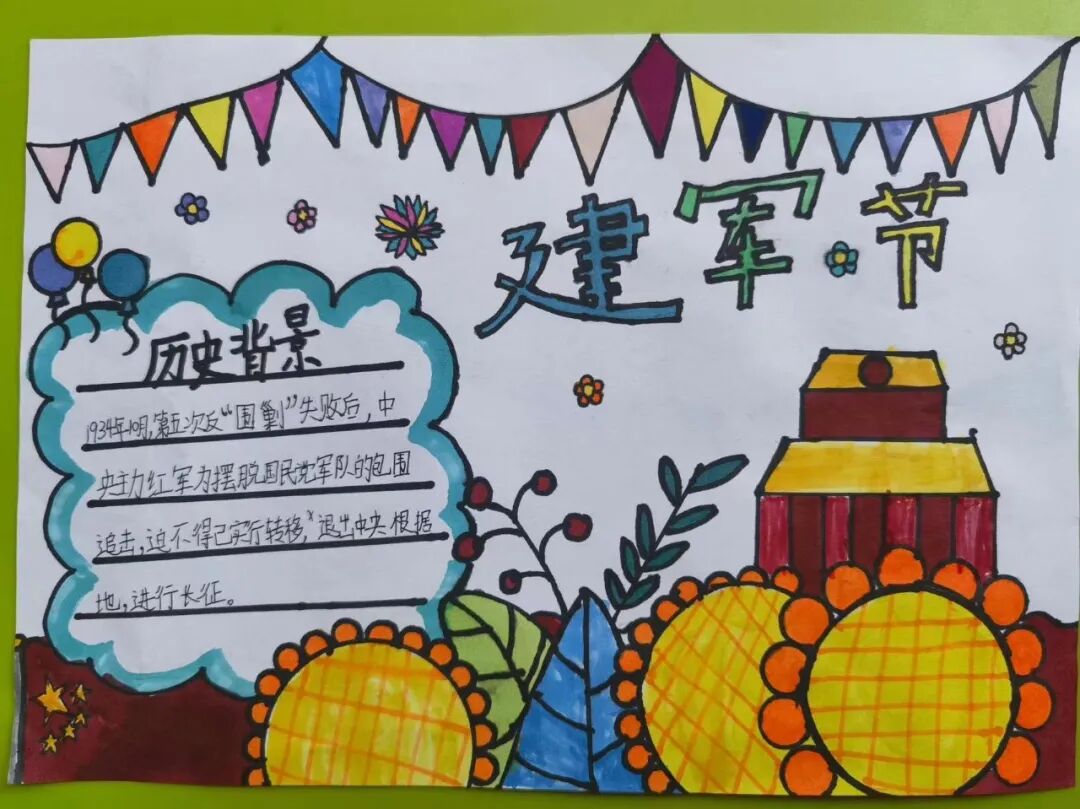 建军节
历史背景
1934年10月,第五次反“围剿”失败后,中
央主力红军为摆脱国民党军队的包围
追击,迫不得已实行转移,退出中央根据
地,进行长征。